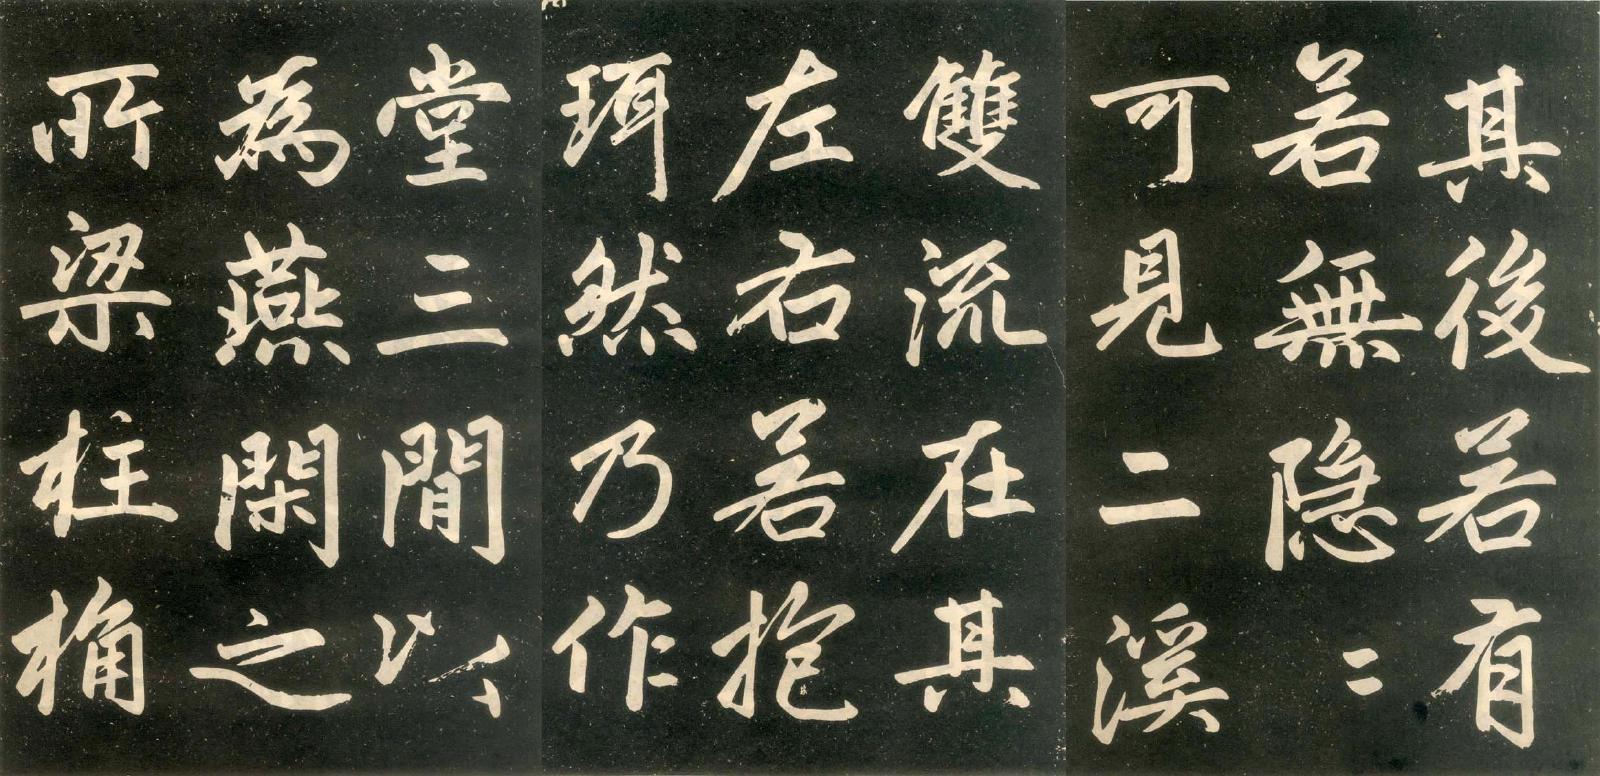 其後若有
若無隐〻
可見二溪
雙流在其
左右若抱
珥然乃作
堂三閒以
為燕閑之
所梁柱桷